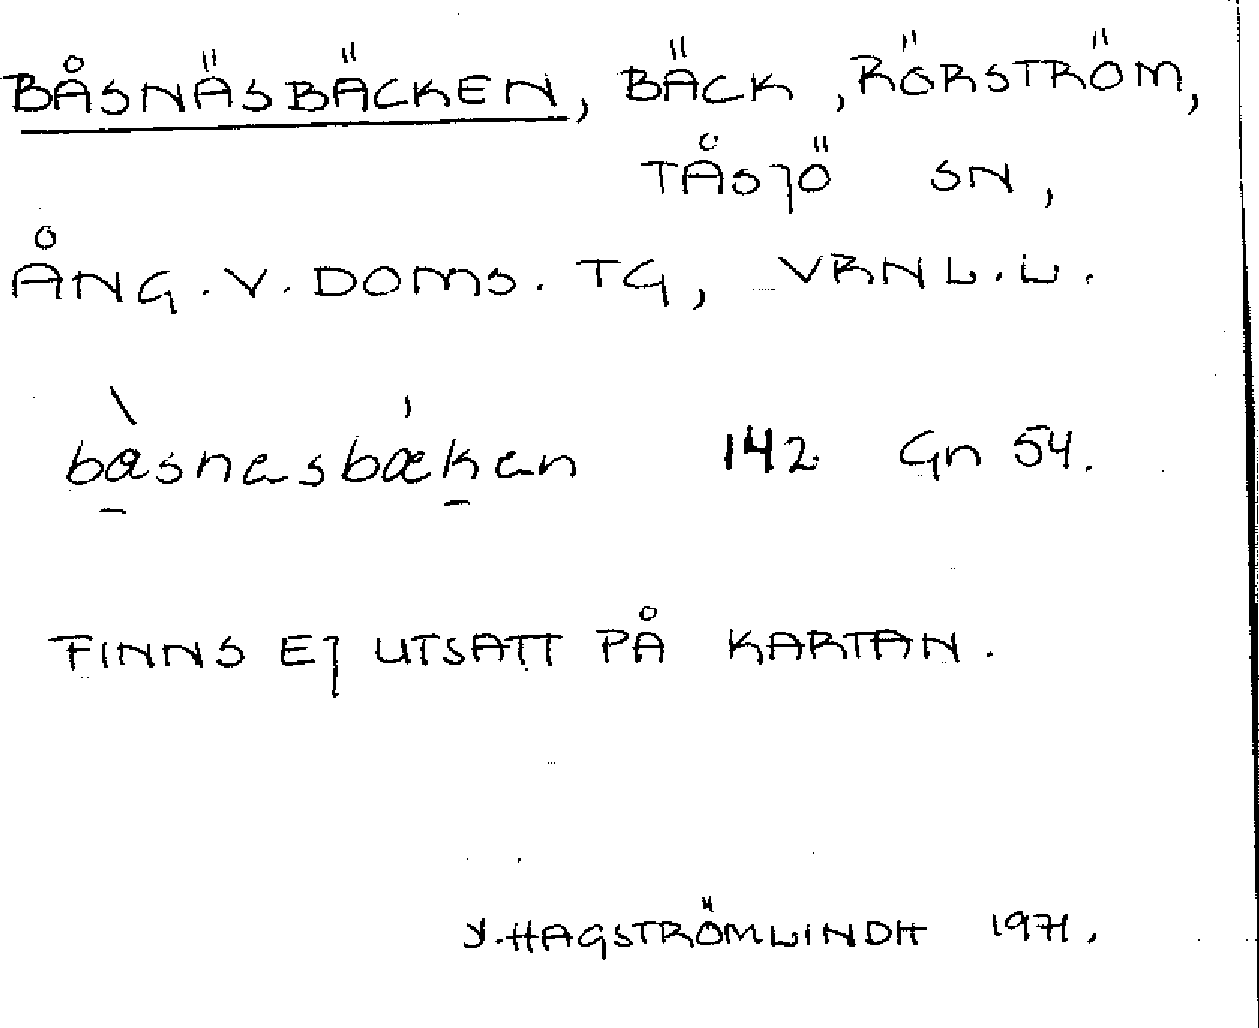 BÅSNÄSBÄCKEN, BÄCK, RÖRSTRÖM,
TÅSJÖ SN,
ÅNG. V. DOMS. TG, VRNL.L.
bàsnasbǽken 142 Gn 54.
FINNS EJ UTSATT PÅ KARTAN.
Y. HAGSTRÖMLINDH 1971.